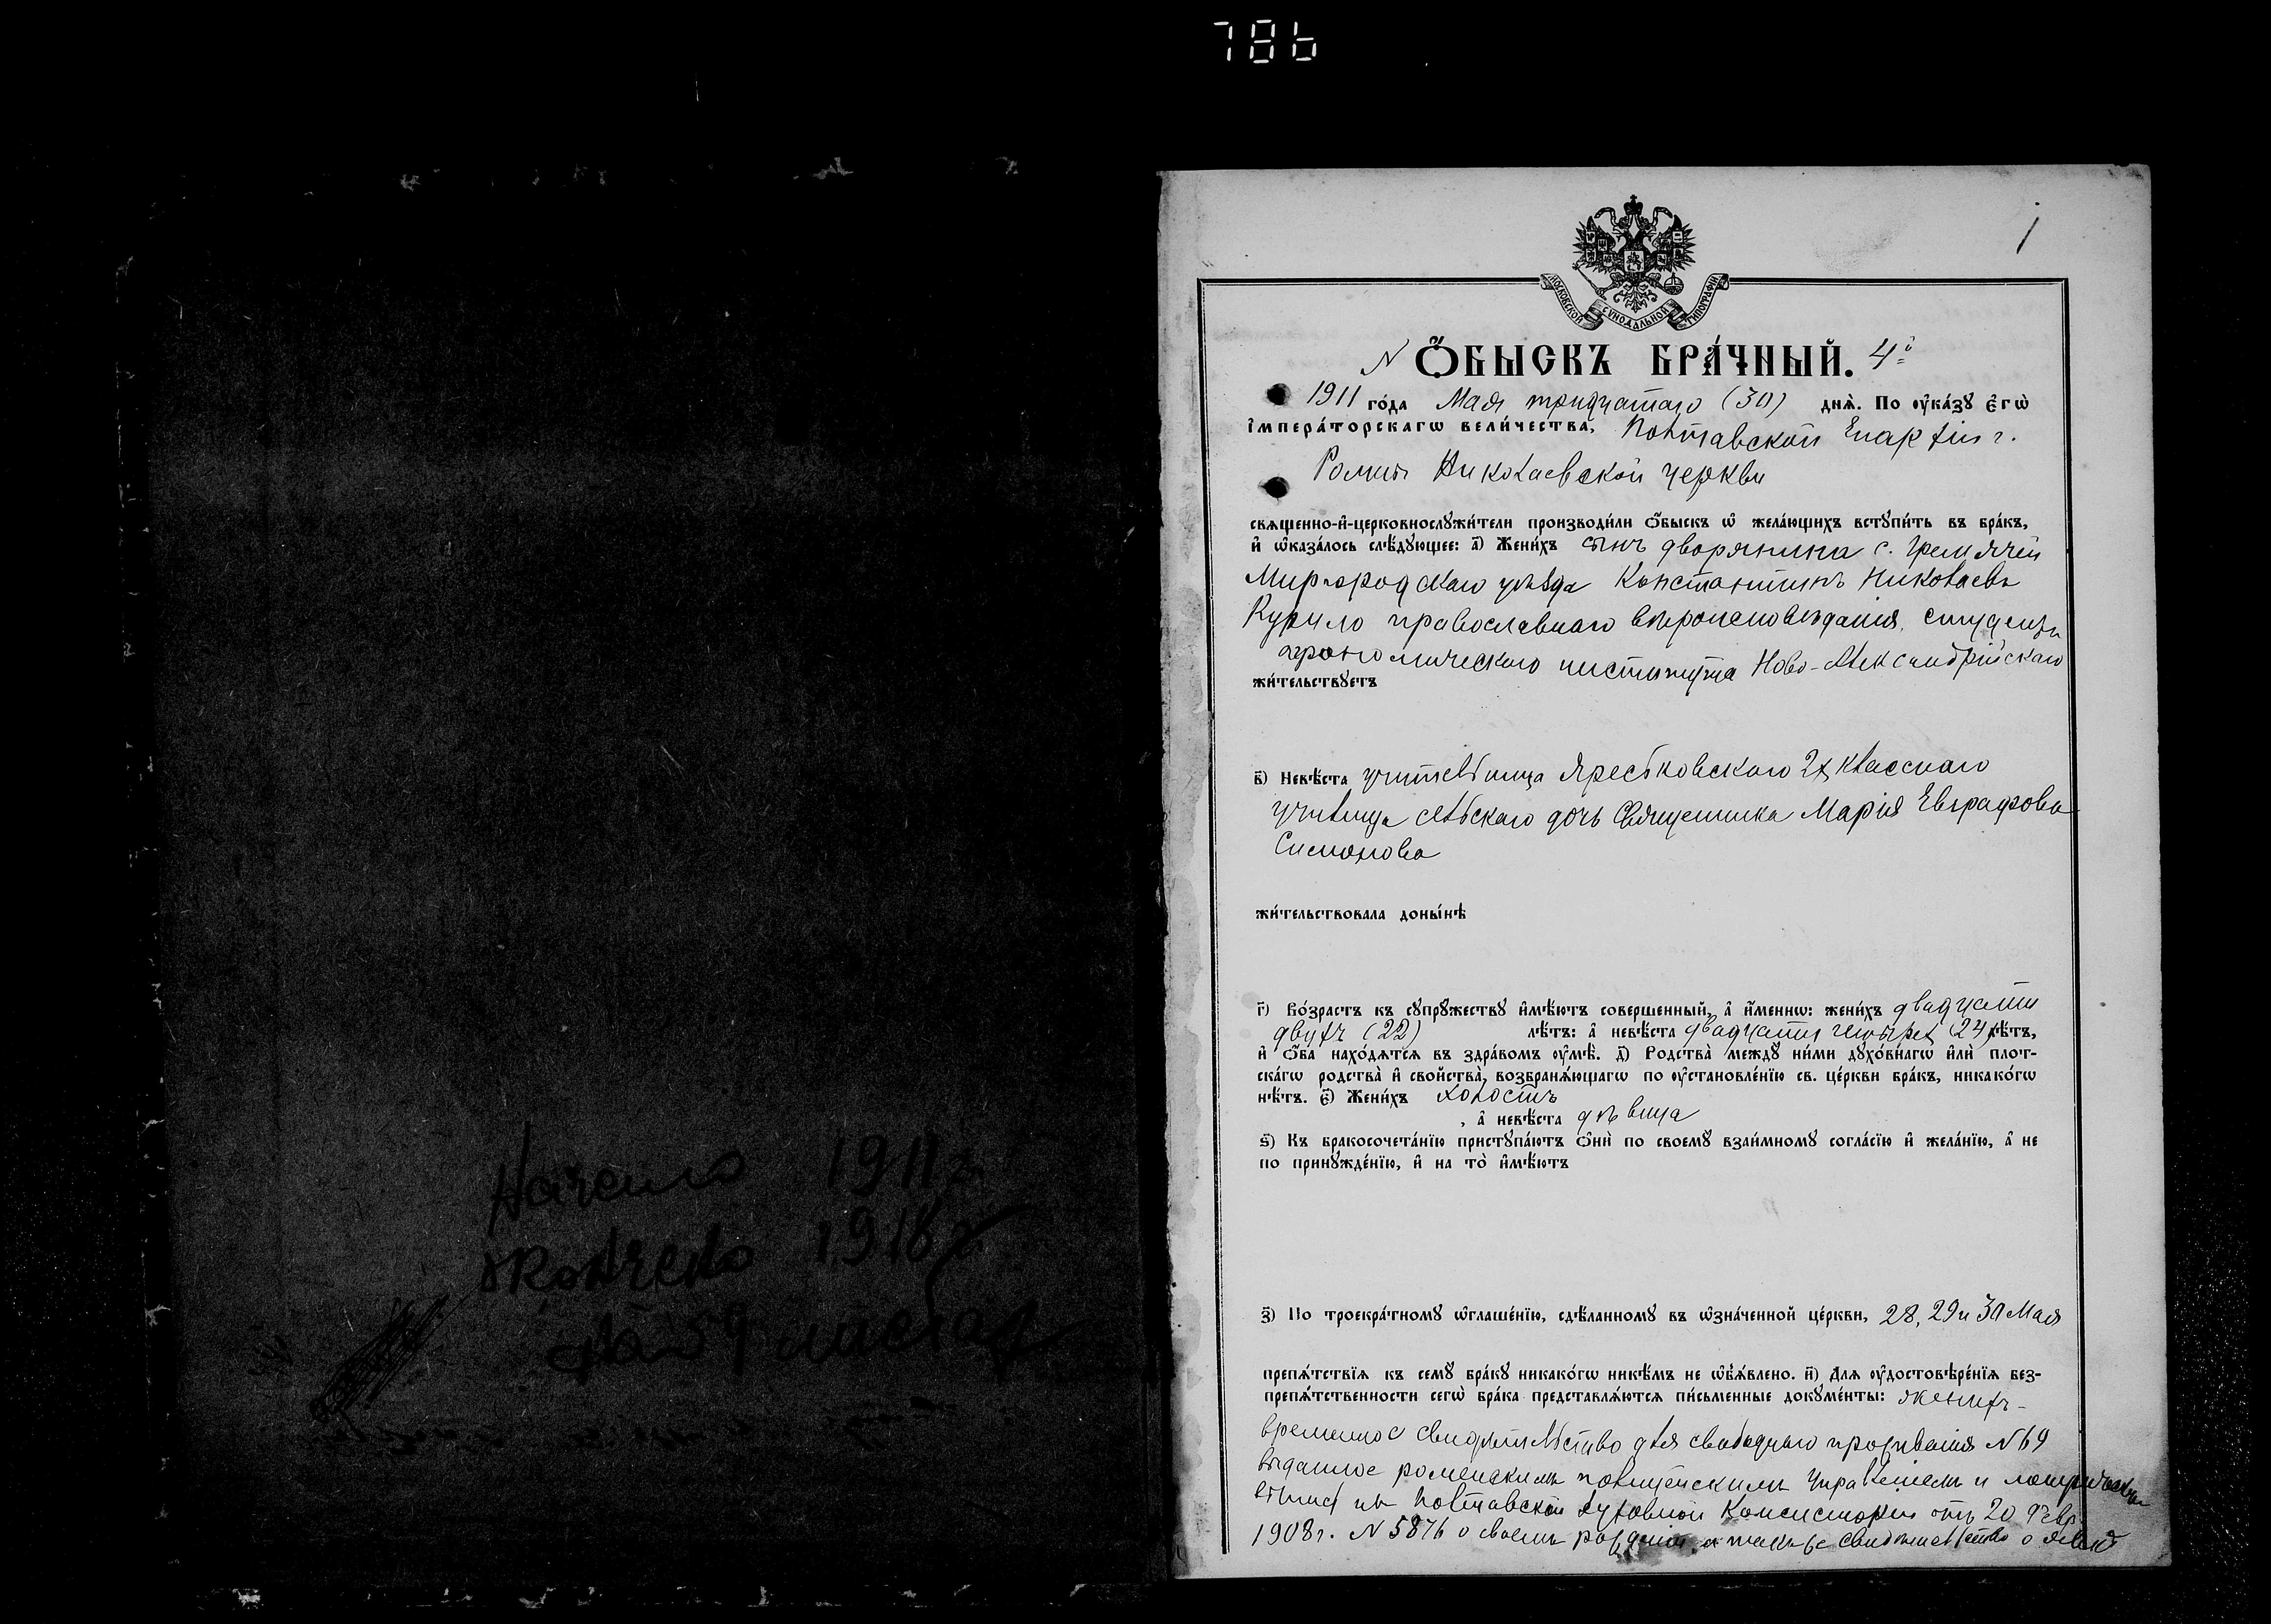 786
Начато 1911 г
Окончено 1918 г
На 59 листах
1
МОСКОВСКОЙ СѴНОДАЛЬНОЙ ТИПОГРАФІИ
N ѾБЫСКЪ БРА́ЧНЫЙ. 4й
1911 го́да Мая тридцатаго (30) днѧ̀. По ᲂу҆ка́зꙋ є҆гѡ̀
і҆мпера́торскагѡ вели́чества, Полтавской Епархіи г.
Роменъ Николаевской церкви
свѧщенно-и҆-церковнослꙋжи́тели производи́ли ѻ҆́быскъ ѡ҆ жела́ющихъ встꙋпи́ть въ бра́къ,
и҆ ѡ҆каза́лось слѣ́дꙋющее: а҃) Жени́хъ сынъ дворянина с. Гремячей
Миргородскаго уѣзда Константинъ Николаевъ
Курило православнаго вѣроисповѣданія, студентъ
агрономическаго института Ново-Александрійскаго
жи́тельствꙋетъ
в҃) Невѣ́ста учительница Яреськовскаго 2х класснаго
училища сельскаго дочь Священника Марія Евграфова
Симонова
жи́тельствовала доны́нѣ
г҃) Во́зрастъ къ сꙋпрꙋ́жествꙋ и҆мѣ́ютъ соверше́нный, а҆ и҆́меннѡ: жени́хъ двадцати
двухъ (22) лѣ́тъ: а҆ невѣ́ста двадцати четырех 24 лѣ́тъ,
и҆ ѻ҆́ба нахо́дѧтсѧ въ здра́вомъ ᲂу҆мѣ̀. д҃) Родства̀ междꙋ̀ ни́ми дꙋхо́внагѡ и҆лѝ плот-
ска́гѡ родства̀ и҆ сво́йства, возбранѧ́ющагѡ по ᲂу҆становле́нїю св. це́ркви бра́къ, никако́гѡ
нѣ́тъ. є҃) Жени́хъ холостъ
, а҆ невѣ́ста дѣвица
ѕ҃) Къ бракосочета́нїю пристꙋпа́ютъ ѻ҆нѝ по своемꙋ̀ взаи́мномꙋ согла́сїю и҆ жела́нїю, а҆ не
по принꙋжде́нїю, и҆ на то̀ и҆мѣ́ютъ
з҃) По троекра́тномꙋ ѡ҆глаше́нїю, сдѣ́ланномꙋ въ ѡ҆зна́ченной це́ркви, 28, 29 и 30 Мая
препѧ́тствїѧ къ семꙋ̀ бра́кꙋ никако́гѡ никѣ́мъ не ѡ҆б̾ѧ́влено. и҃) Длѧ ᲂу҆достовѣре́нїѧ без-
препѧ́тственности сегѡ̀ бра́ка представлѧ́ютсѧ пи́сьменные докꙋме́нты: женихъ-
временное свидѣтельство для свободнаго проживанія N 69
выданное роменскимъ полицейскимъ Управленіемъ и метрическое
изъ Полтавской Духовной Консисторіи отъ 20 Февр.
1908 г. N 5876 о своемъ рожденіи, а также свидѣтельство о явкѣ